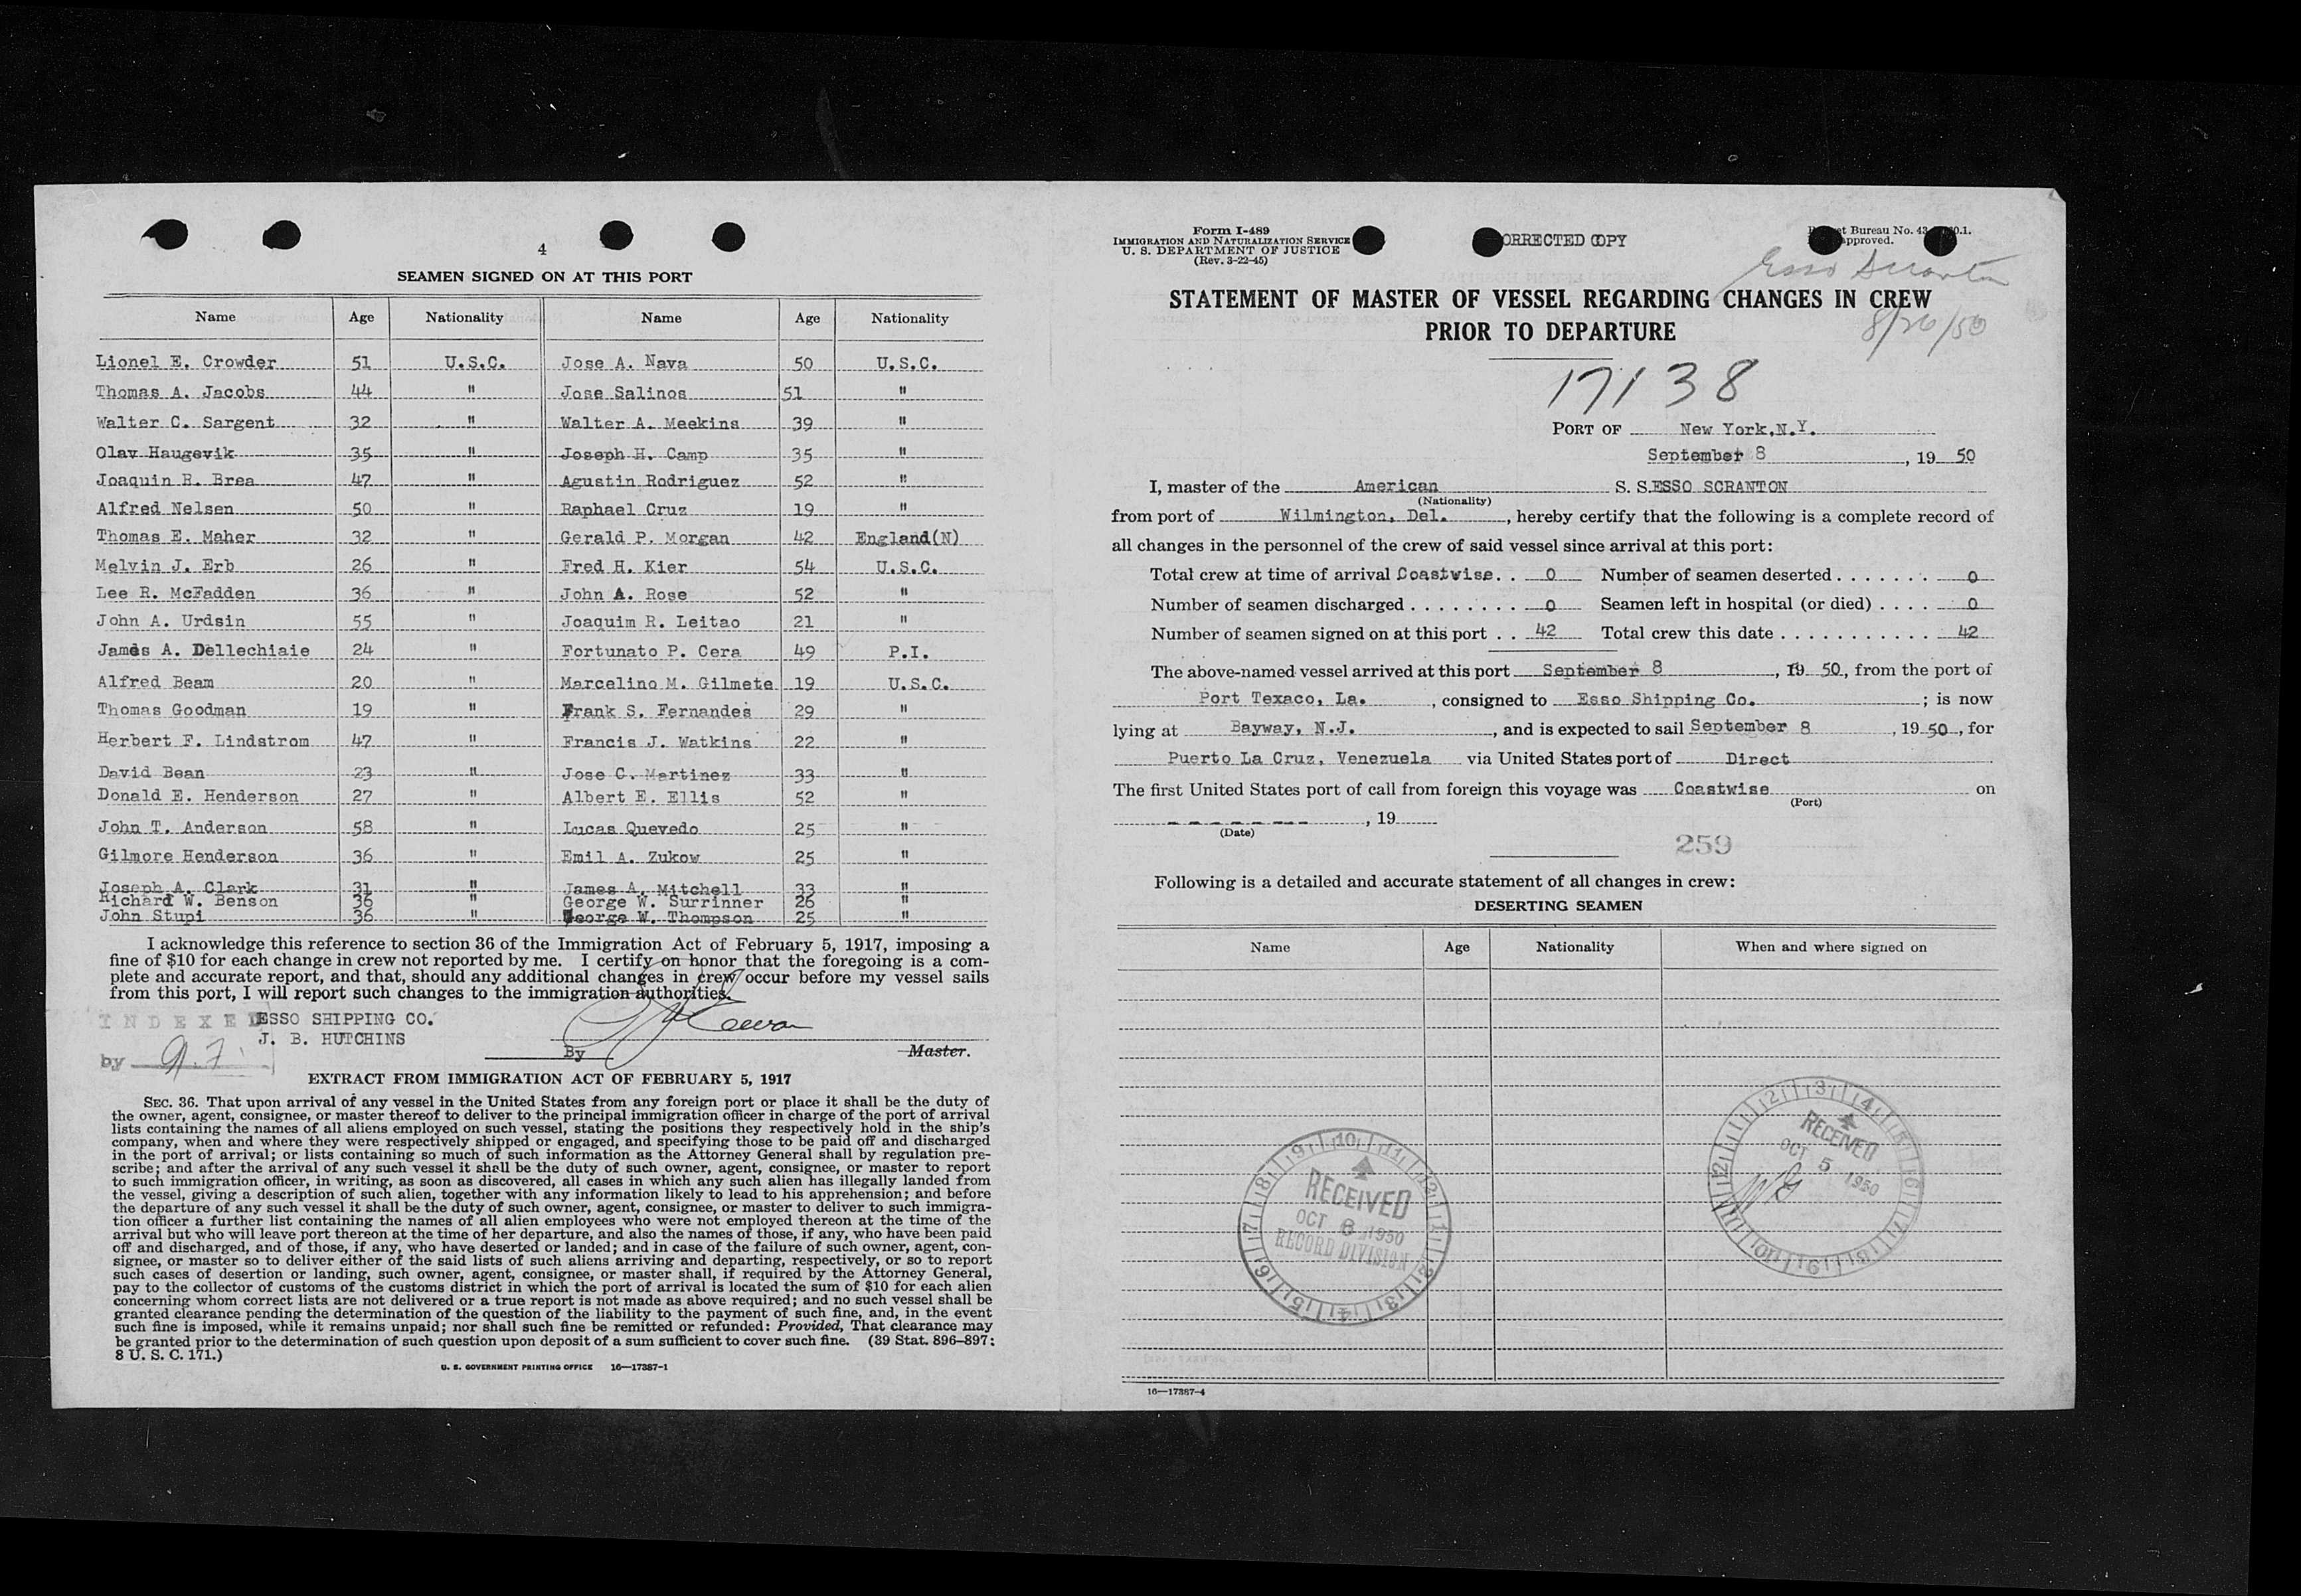 4
SEAMEN SIGNED ON AT THIS PORT
Name Age Nationality Name Age Nationality
Lionel E. Crowder 51 U.S.C. Jose A. Nava 50 U.S.C.
Thomas A. Jacobs 44 " Jose Salinos 51 "
Walter C. Sargent 32 " Walter A. Meekins 39 "
Olav Haugevik 35 " Joseph H. Camp 35 "
Joaquin R. Brea 47 " Agustin Rodriguez 52 "
Alfred Nelsen 50 " Raphael Cruz 19 "
Thomas E. Maher 32 " Gerald P. Morgan 42 England(N)
Melvin J. Erb 26 " Fred H. Kier 54 U.S.C.
Lee R. McFadden 36 " John A. Rose 52 "
John A. Urdsin 55 " Joaquim R. Leitao 21 "
James A. Dellechiaie 24 " Fortunato P. Cera 49 P.I.
Alfred Beam 20 " Marcelino M. Gilmete 19 U.S.C.
Thomas Goodman 19 " Frank S. Fernandes 29 "
Herbert F. Lindstrom 47 " Francis J. Watkins 22 "
David Bean 23 " Jose C. Martinez 33 "
Donald E. Henderson 27 " Albert E. Ellis 52 "
John T. Anderson 58 " Lucas Quevedo 25 "
Gilmore Henderson 36 " Emil A. Zukow 25 "
Joseph A. Clark 31 " James A. Mitchell 33 "
Richard W. Benson 36 " George W. Surrinner 26 "
John Stupi 36 " George W. Thompson 25 "
I acknowledge this reference to section 36 of the Immigration Act of February 5, 1917, imposing a
fine of $10 for each change in crew not reported by me. I certify on honor that the foregoing is a com-
plete and accurate report, and that, should any additional changes in crew occur before my vessel sails
from this port, I will report such changes to the immigration authorities.
INDEXED ESSO SHIPPING CO.
J. B. HUTCHINS
by
By Master.
EXTRACT FROM IMMIGRATION ACT OF FEBRUARY 5, 1917
SEC. 36. That upon arrival of any vessel in the United States from any foreign port or place it shall be the duty of
the owner, agent, consignee, or master thereof to deliver to the principal immigration officer in charge of the port of arrival
lists containing the names of all aliens employed on such vessel, stating the positions they respectively hold in the ship's
company, when and where they were respectively shipped or engaged, and specifying those to be paid off and discharged
in the port of arrival; or lists containing so much of such information as the Attorney General shall by regulation pre-
scribe; and after the arrival of any such vessel it shall be the duty of such owner, agent, consignee, or master to report
to such immigration officer, in writing, as soon as discovered, all cases in which any such alien has illegally landed from
the vessel, giving a description of such alien, together with any information likely to lead to his apprehension; and before
the departure of any such vessel it shall be the duty of such owner, agent, consignee, or master to deliver to such immigra-
tion officer a further list containing the names of all alien employees who were not employed thereon at the time of the
arrival but who will leave port thereon at the time of her departure, and also the names of those, if any, who have been paid
off and discharged, and of those, if any, who have deserted or landed; and in case of the failure of such owner, agent, con-
signee, or master so to deliver either of the said lists of such aliens arriving and departing, respectively, or so to report
such cases of desertion or landing, such owner, agent, consignee, or master shall, if required by the Attorney General,
pay to the collector of customs of the customs district in which the port of arrival is located the sum of $10 for each alien
concerning whom correct lists are not delivered or a true report is not made as above required; and no such vessel shall be
granted clearance pending the determination of the question of the liability to the payment of such fine, and, in the event
such fine is imposed, while it remains unpaid; nor shall such fine be remitted or refunded: Provided, That clearance may
be granted prior to the determination of such question upon deposit of a sum sufficient to cover such fine. (39 Stat. 896-897;
8 U. S. C. 171.)
U. S. GOVERNMENT PRINTING OFFICE 16—17387-1
Form I-489
IMMIGRATION AND NATURALIZATION SERVICE
U. S. DEPARTMENT OF JUSTICE
(Rev. 3-22-45)
ORRECTED COPY
et Bureau No. 43- 0.1.
approved.
Esso Scranton
8/26/50
STATEMENT OF MASTER OF VESSEL REGARDING CHANGES IN CREW
PRIOR TO DEPARTURE
17138
PORT OF New York, N.Y.
September 8, 19 50
I, master of the American S. S. ESSO SCRANTON
(Nationality)
from port of Wilmington, Del., hereby certify that the following is a complete record of
all changes in the personnel of the crew of said vessel since arrival at this port:
Total crew at time of arrival Coastwise. . 0 Number of seamen deserted . . . . . . . 0
Number of seamen discharged . . . . . . . . 0 Seamen left in hospital (or died) . . . . 0
Number of seamen signed on at this port . . 42 Total crew this date . . . . . . . . . . . 42
The above-named vessel arrived at this port September 8, 19 50, from the port of
Port Texaco, La., consigned to Esso Shipping Co.; is now
lying at Bayway, N.J., and is expected to sail September 8, 19 50, for
Puerto La Cruz, Venezuela via United States port of Direct
The first United States port of call from foreign this voyage was Coastwise on
(Port)
- - - - - - - -, 19
(Date)
259
Following is a detailed and accurate statement of all changes in crew:
DESERTING SEAMEN
Name Age Nationality When and where signed on
RECEIVED
OCT 5 1950
RECEIVED
OCT 6 1950
RECORD DIVISION
16—17387-4